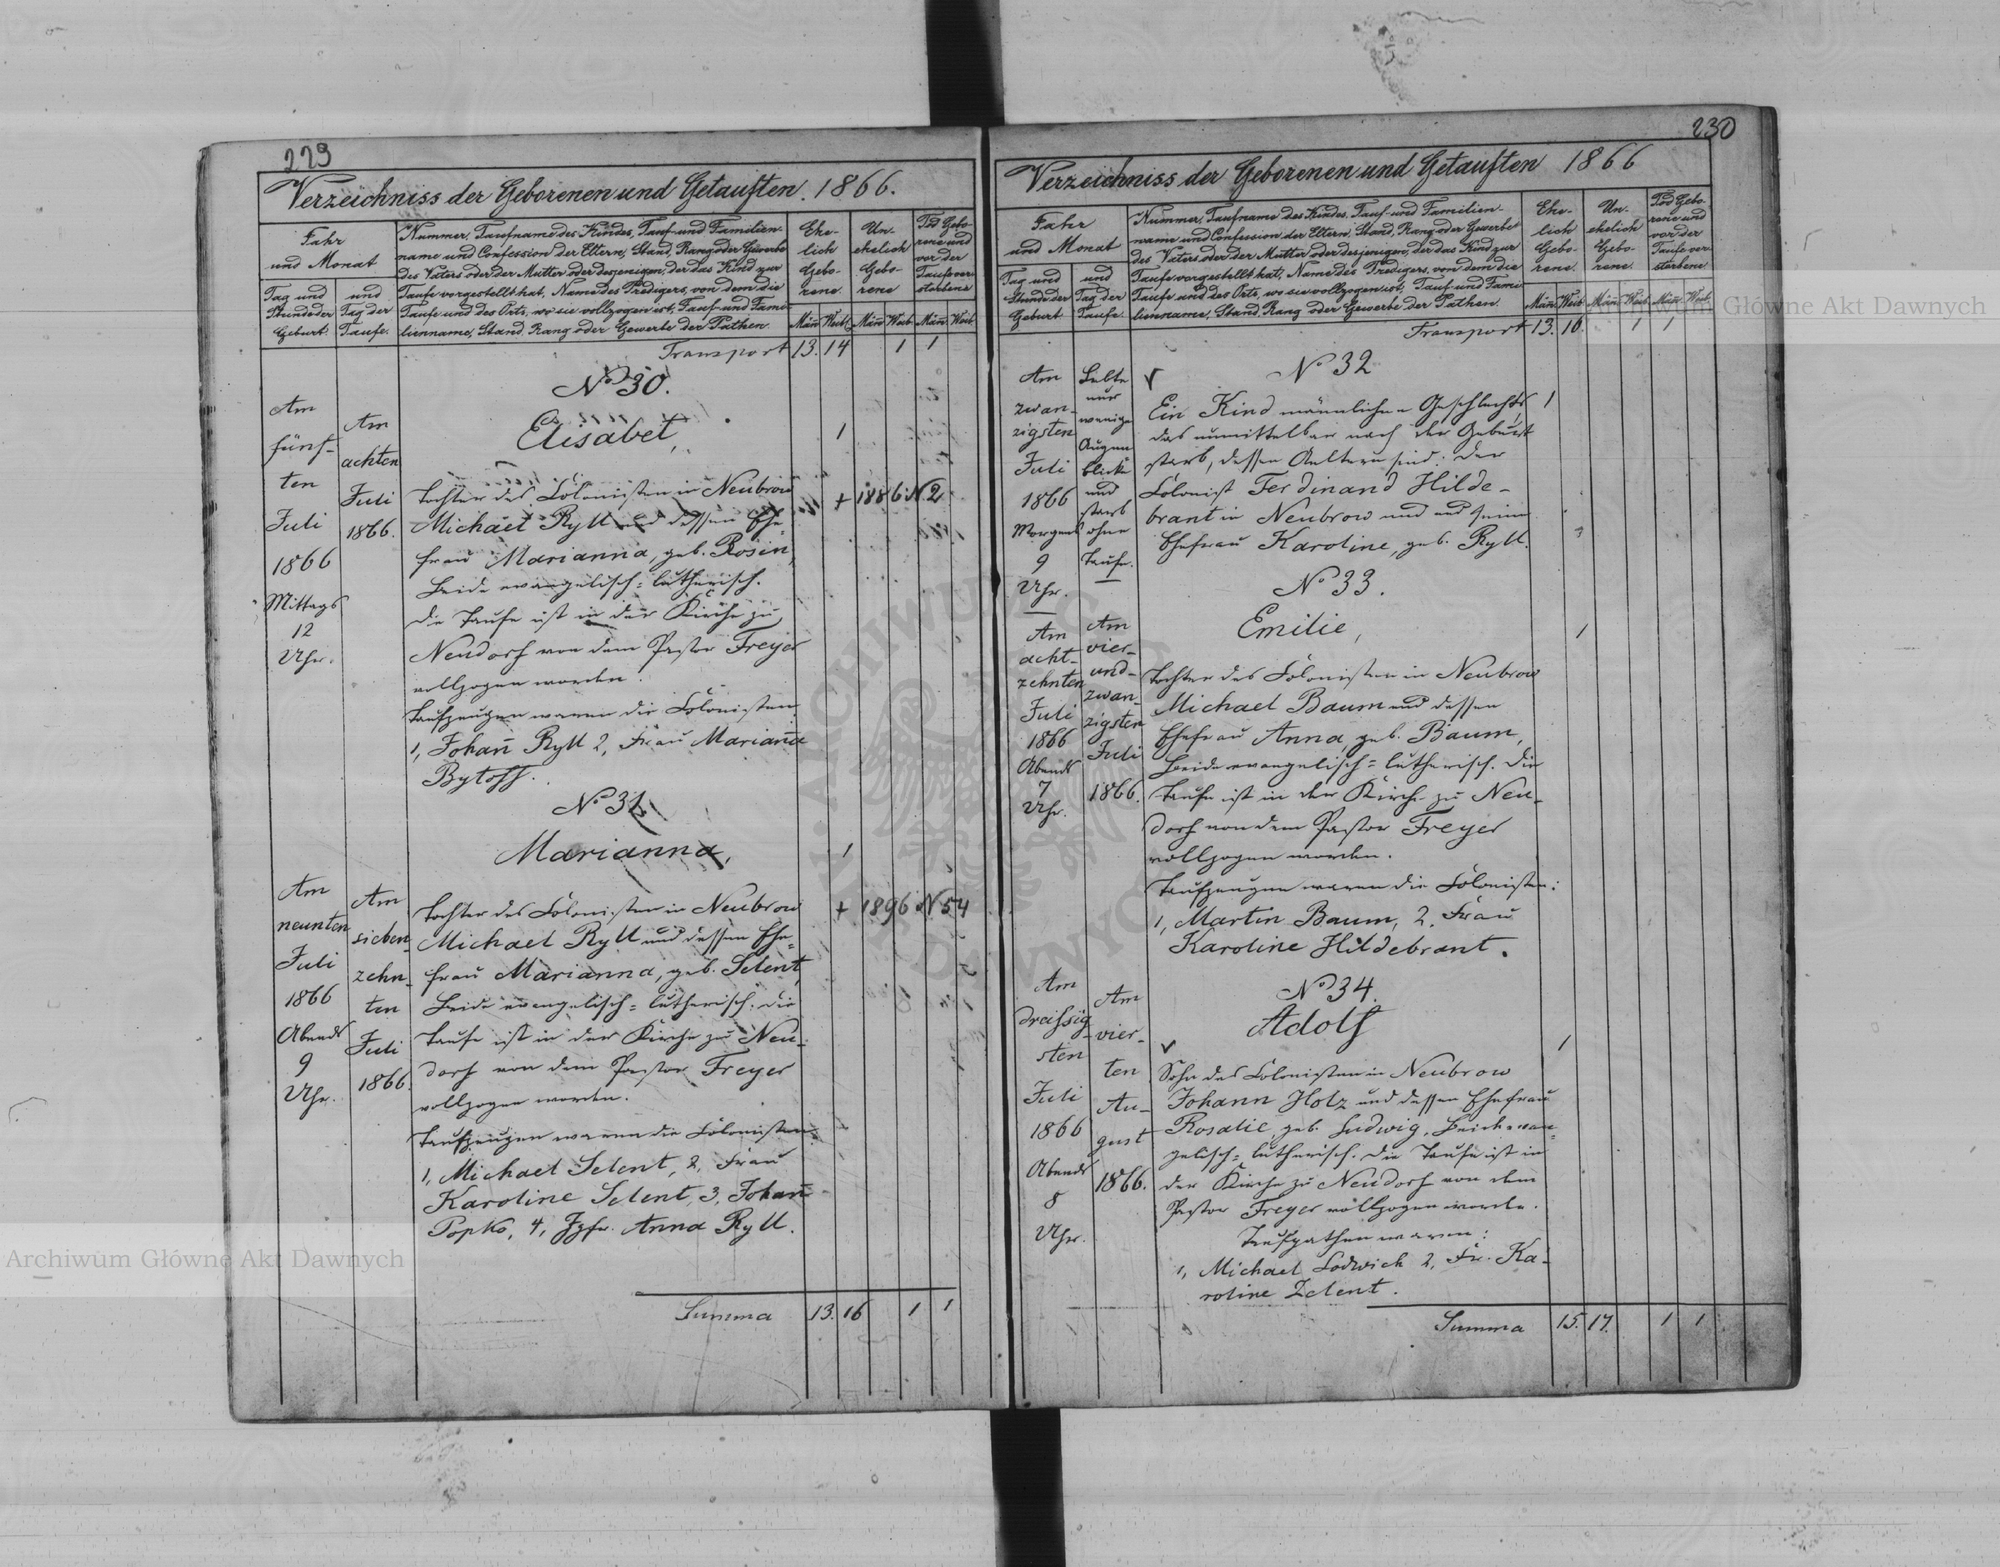 229
Verzeichniss der Geborenen und Getauften. 1866.
Jahr
und Monat
Tag und
Stunde der
Geburt.
und
Tag der
Taufe.
Nummer, Taufname des Kindes, Tauf- und Familien-
name und Confession der Eltern, Stand, Rang oder Gewerbe
des Vaters oder der Mutter oder desjenigen, der das Kind zur
Taufe vorgestellt hat, Name des Predigers, von dem die
Taufe und des Orts, wo sie vollzogen ist, Tauf- und Fami-
lienname, Stand, Rang oder Gewerbe der Pathen.
Ehe-
lich
Gebo-
rene.
Un-
ehelich
Gebo-
rene
Tod Gebo-
rene und
vor der
Taufe ver-
storbene
Män̄ Weib. Män̄ Weib. Män̄ Weib.
Transport 13. 14 1 1
No 30.
Am
fünf-
ten
Juli
1866
Mittags
12
Uhr.
Am
achten
Juli
1866.
Elisabet,
1
Tochter des Colonisten in Neubrow
Michael Ryll und dessen Ehe-
frau Marianna, geb. Rosin,
beide evangelisch-lutherisch.
Die Taufe ist in der Kirche zu
Neudorf von dem Pastor Freyer
vollzogen worden.
Taufzeugen waren die Colonisten
1, Johan̄ Ryll 2, Frau Marian̄a
Bytoff.
+ 1886 N 2
No 31.
Marianna,
1
Am
neunten
Juli
1866
Abends
9
Uhr.
Am
sieben-
zehn-
ten
Juli
1866.
Tochter des Colonisten in Neubrow
Michael Ryll und dessen Ehe-
frau Marianna, geb. Selent,
beide evangelisch-lutherisch. Die
Taufe ist in der Kirche zu Neu-
dorf von dem Pastor Freyer
vollzogen worden.
Taufzeugen waren die Colonisten:
1, Michael Selent, 2, Frau
Karoline Selent, 3, Johan̄
Popko, 4, Jgfr. Anna Ryll.
+ 1896 N 54
Summa 13. 16 1 1
230
Verzeichniss der Geborenen und Getauften 1866
Jahr
und Monat
Tag und
Stunde der
Geburt
und
Tag der
Taufe.
Nummer, Taufname des Kindes, Tauf- und Familien-
name und Confession der Eltern, Stand, Rang oder Gewerbe
des Vaters oder der Mutter oder desjenigen, der das Kind zur
Taufe vorgestellt hat, Name des Predigers, von dem die
Taufe und des Orts, wo sie vollzogen ist, Tauf- und Fami-
lienname, Stand, Rang oder Gewerbe der Pathen.
Ehe-
lich
Gebo-
rene.
Un-
ehelich
Gebo-
rene.
Tod Gebo-
rene und
vor der
Taufe ver-
storbene
Män̄ Weib. Män̄ Weib. Män̄ Weib.
Transport 13. 16. 1 1
No 32
Am
zwan-
zigsten
Juli
1866
Morgens
9
Uhr.
Lebte
nur
wenige
Augen
blicke
und
starb
ohne
Taufe.
Ein Kind männlichen Geschlechts,
das unmittelbar nach der Geburt
starb, dessen Aeltern sind: der
Colonist Ferdinand Hilde-
brant in Neubrow und und seine
Ehefrau Karoline, geb. Ryll.
1
No 33.
Emilie,
1
Am
acht-
zehnten
Juli
1866
Abends
7
Uhr.
Am
vier-
und-
zwan-
zigsten
Juli
1866.
Tochter des Colonisten in Neubrow
Michael Baum und dessen
Ehefrau Anna, geb. Baum,
beide evangelisch-lutherisch. Die
Taufe ist in der Kirche zu Neu-
dorf von dem Pastor Freyer
vollzogen worden.
Taufzeugen waren die Colonisten:
1, Martin Baum, 2, Frau
Karoline Hildebrant.
No 34.
Adolf
1
Am
dreissig-
sten
Juli
1866
Abends
8
Uhr.
Am
vier-
ten
Au-
gust
1866.
Sohn des Colonisten in Neubrow
Johann Holz und dessen Ehefrau
Rosalie, geb. Ludwig, beide evan-
gelisch-lutherisch. Die Taufe ist in
der Kirche zu Neudorf von dem
Pastor Freyer vollzogen worden.
Taufpathen waren:
1, Michael Lodwich 2, Fr. Ka-
roline Zelent.
Summa 15. 17. 1 1
Archiwum Główne Akt Dawnych
Archiwum Główne Akt Dawnych